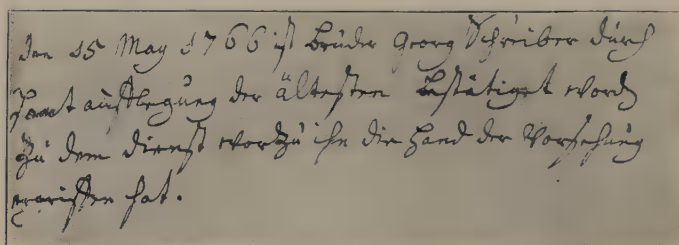 den 15 May 1766 ist bruder Georg Schreiber durch
Hant aufflegung der ältesten bestätiget word
zu dem dienst worzu ihn die hand der Vorsehung
ergriffen hat.